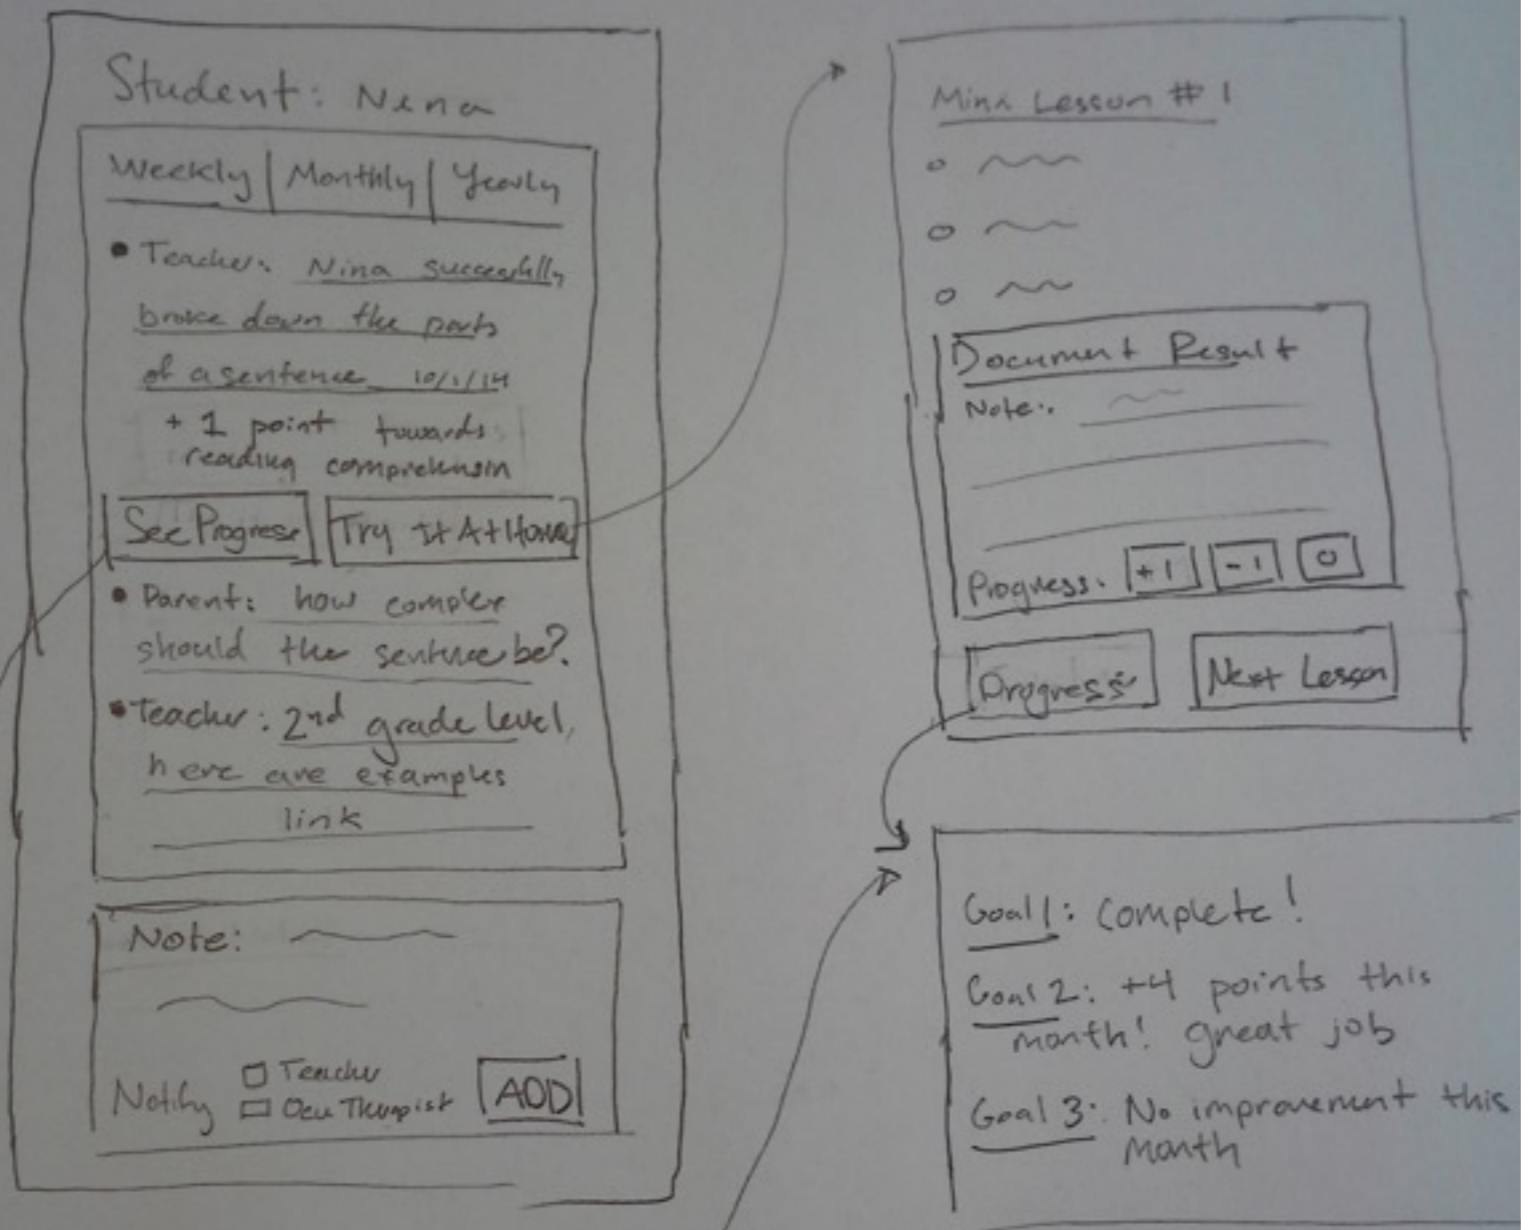 Student: Nina
Weekly | Monthly | Yearly
• Teacher: Nina successfully
broke down the parts
of a sentence 10/1/14
+ 1 point towards
reading comprehension
See Progress
Try It At Home
• Parent: how complex
should the sentence be?
• Teacher: 2nd grade level,
here are examples
link
Note:
Notify
Teacher
Occu Therapist
ADD
Mini Lesson # 1
Document Result
Note:
Progress: +1 -1 0
Progress
Next Lesson
Goal 1: Complete!
Goal 2: +4 points this
month! great job
Goal 3: No improvement this
month